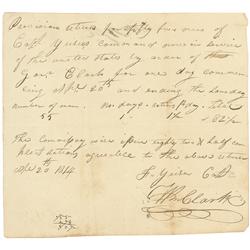 Provision return for fifty five men of
Capt Yeizer Command now in service
of the united States by order of
Gov Clark for one day commen
cing Sept 20th and ending the same day
number of men. No. days. rations pr day. Total
55 1 1½ 82½
The Commissary will issue eighty two & half com
plete rations agreeable to the above return
Sept 20 1814
Capt
Clark